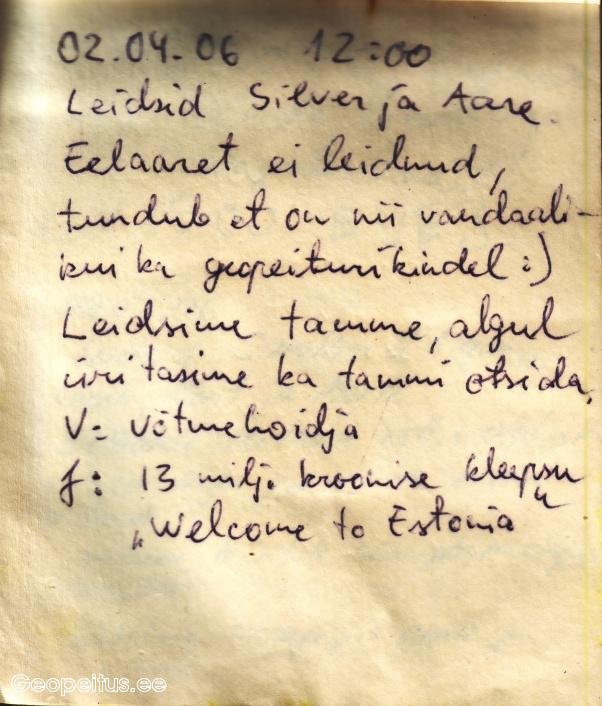 02.04.06 12:00
Leidsid Silver ja Aare.
Eelaaret ei leidnud,
tundub et on nii vandaali-
kui ka geopeiturikindel :)
Leidsime tamme, algul
üritasime ka tammi otsida.
V: võtmehoidja
J: 13 milj. kroonise kleepsu
„Welcome to Estonia“
Geopeitus.ee